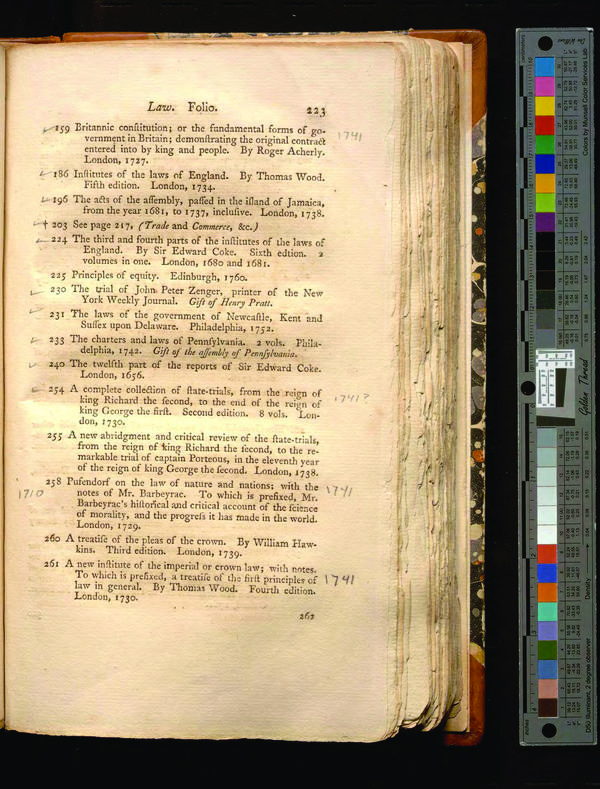 Law. Folio. 223
159 Britannic conſtitution; or the fundamental forms of go-
vernment in Britain; demonſtrating the original contract 1741
entered into by king and people. By Roger Acherly.
London, 1727.
186 Inſtitutes of the laws of England. By Thomas Wood.
Fifth edition. London, 1734.
196 The acts of the aſſembly, paſſed in the iſland of Jamaica,
from the year 1681, to 1737, incluſive. London, 1738.
† 203 See page 217, (Trade and Commerce, &c.)
224 The third and fourth parts of the inſtitutes of the laws of
England. By Sir Edward Coke. Sixth edtion. 2
volumes in one. London, 1680 and 1681.
225 Principles of equity. Edinburgh, 1760.
230 The trial of John Peter Zenger, printer of the New
York Weekly Journal. Gift of Henry Pratt.
231 The laws of the government of Newcaſtle, Kent and
Suſſex upon Delaware. Philadelphia, 1752.
233 The charters and laws of Pennſylvania. 2 vols. Phila-
delphia, 1742. Gift of the aſſembly of Pennſylvania.
240 The twelfth part of the reports of Sir Edward Coke.
London, 1656.
254 A complete collection of ſtate-trials, from the reign of
king Richard the ſecond, to the end of the reign of 1741?
king George the firſt. Second edition. 8 vols. Lon-
don, 1730.
255 A new abridgment and critical review of the ſtate-trials,
from the reign of king Richard the ſecond, to the re-
markable trial of captain Porteous, in the eleventh year
of the reign of king George the ſecond. London, 1738.
258 Pufendorf on the law of nature and nations; with the
1710 notes of Mr. Barbeyrac. To which is prefixed, Mr. 1741
Barbeyrac's hiſtorical and critical account of the ſcience
of morality, and the progreſs it has made in the world.
London, 1729.
260 A treatiſe of the pleas of the crown. By William Haw-
kins. Third edition. London, 1739.
261 A new inſtitute of the imperial or crown law; with notes.
To which is prefixed, a treatiſe of the firſt principles of 1741
law in general. By Thomas Wood. Fourth edition.
London, 1730.
262
Colors by Munsell Color Services Lab
Golden Thread
Density
D50 Illuminant, 2 degree observer